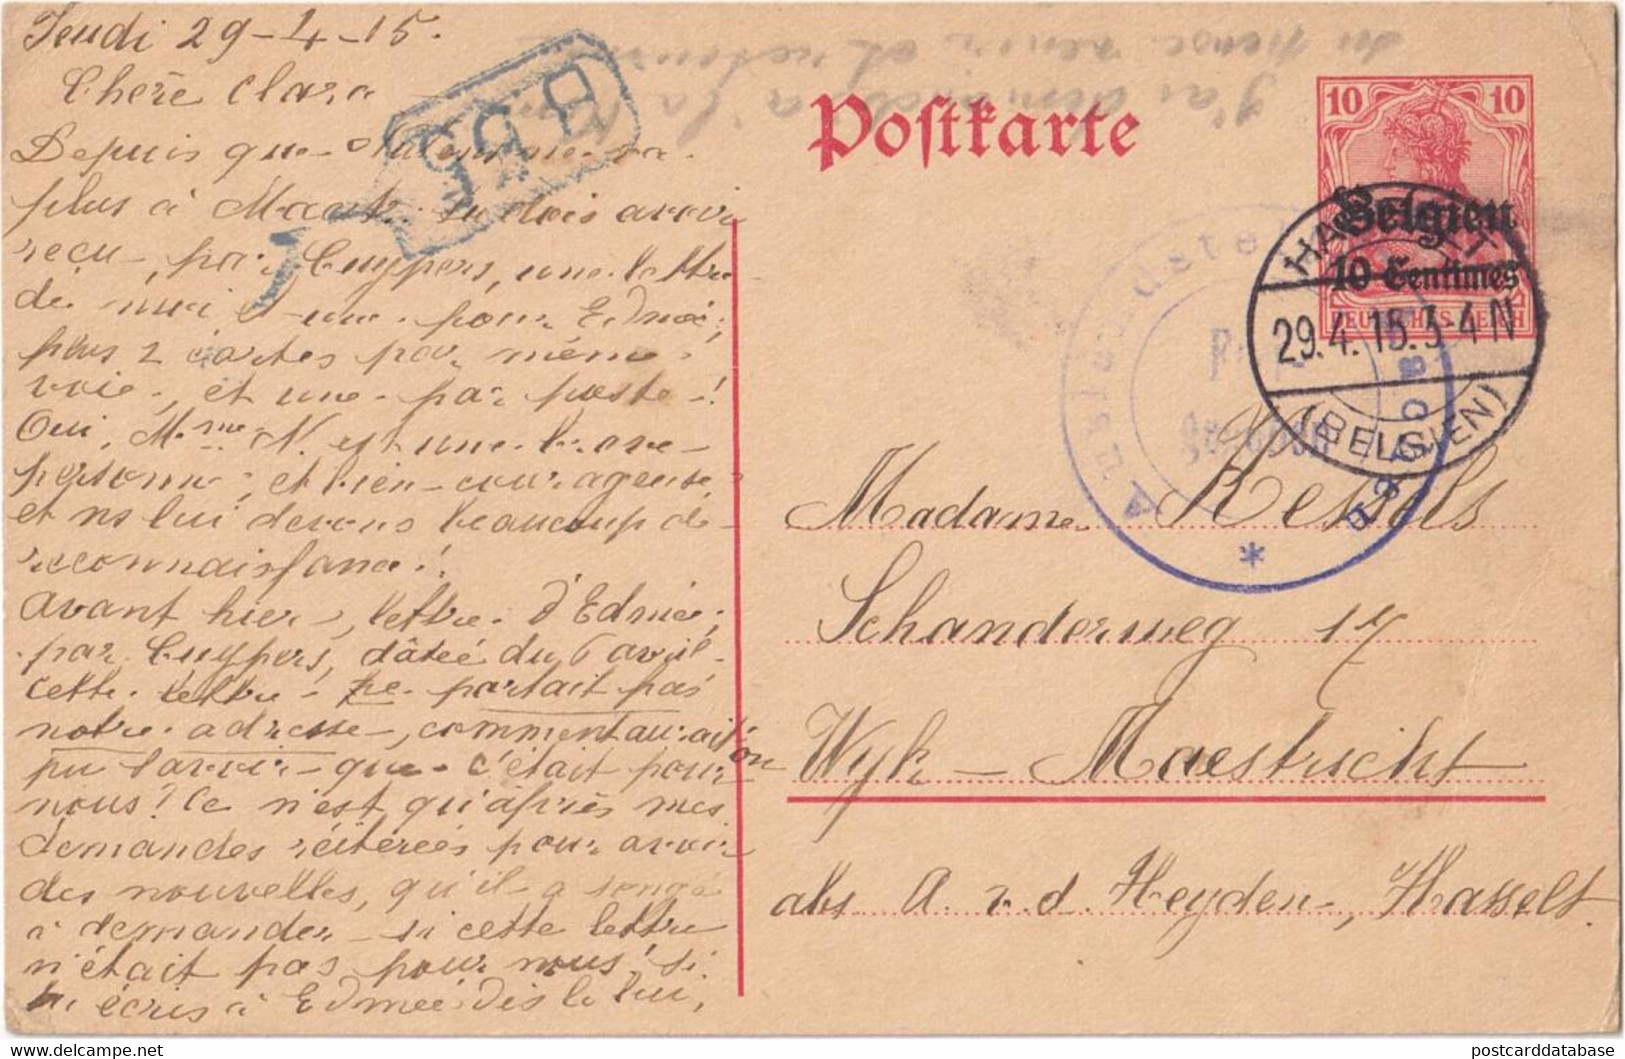 Jeudi 29-4-15.
Chère Clara
Depuis que
plus à Maast. tu dois avoir
reçu, par Cuypers, une lettre
de moi & une pour Edmée,
plus 2 cartes par même
voie, et une par poste!
Oui, Mme N. est une brave
personne, et bien courageuse,
et ns lui devons beaucoup de
reconnaissance!
Avant hier, lettre d'Edmée,
par Cuypers, datée du 6 avril
cette lettre ne portait pas
notre adresse, comment aurait on
pu savoir que c'était pour
nous? Ce n'est qu'après mes
demandes réitérées pour avoir
des nouvelles, qu'il a songé
à demander si cette lettre
n'était pas pour nous! si
tu écris à Edmée dis le lui,
J'ai demandé à la
Postkarte
10 10
Belgien
10 Centimes
DEUTSCHES REICH
HASSELT
29.4.15.3-4 N
(BELGIEN)
Auslandstelle
Aachen
Madame Kessels
Schanderweg 17
Wyk - Maestricht
abs A. v. d. Heyden, Hasselt.
postcarddatabase.com
postcarddatabase